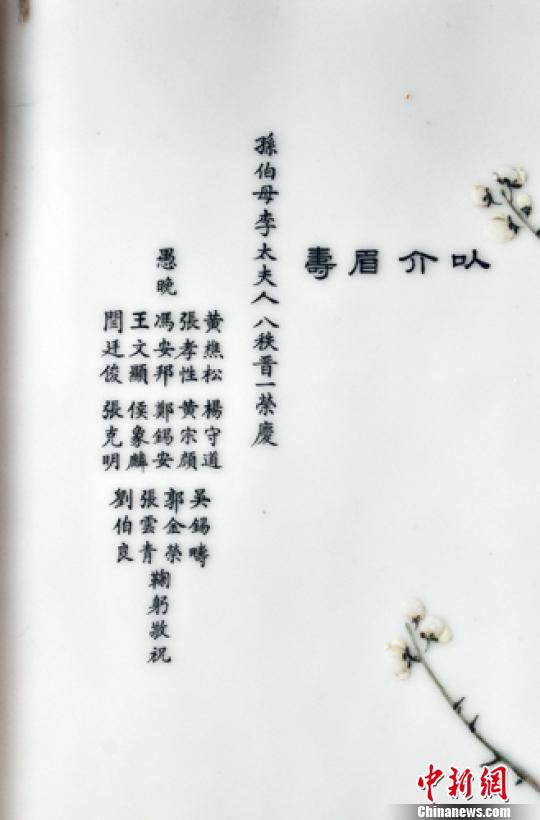 以介眉壽
孫伯母李太夫人八秩晉一榮慶
愚晚
黃樵松 楊守道 吳錫疇
張孝性 黃宗顏 郭金榮
馮安邦 鄭錫安 張雲青
王文顯 侯象麟 劉伯良
閆廷俊 張克明
鞠躬敬祝
中新網
Chinanews.com